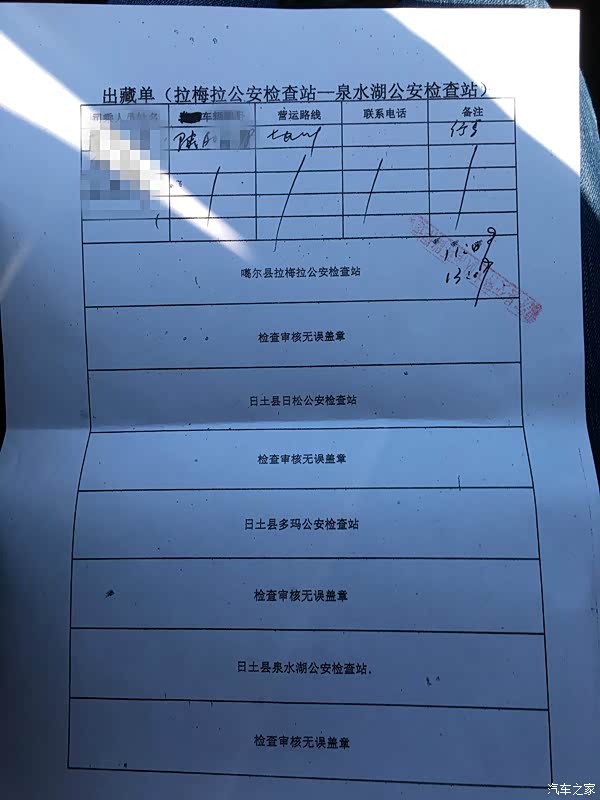 出藏单（拉梅拉公安检查站—泉水湖公安检查站）
营运路线 联系电话 备注
噶尔县拉梅拉公安检查站
检查审核无误盖章
日土县日松公安检查站
检查审核无误盖章
日土县多玛公安检查站
检查审核无误盖章
日土县泉水湖公安检查站
检查审核无误盖章
汽车之家